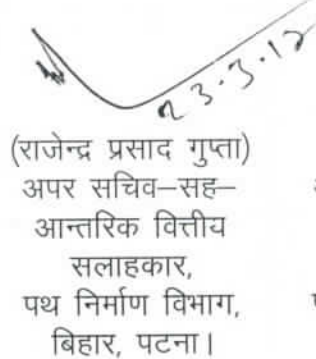 23.3.12
(राजेन्द्र प्रसाद गुप्ता)
अपर सचिव–सह–
आन्तरिक वित्तीय
सलाहकार,
पथ निर्माण विभाग,
बिहार, पटना।